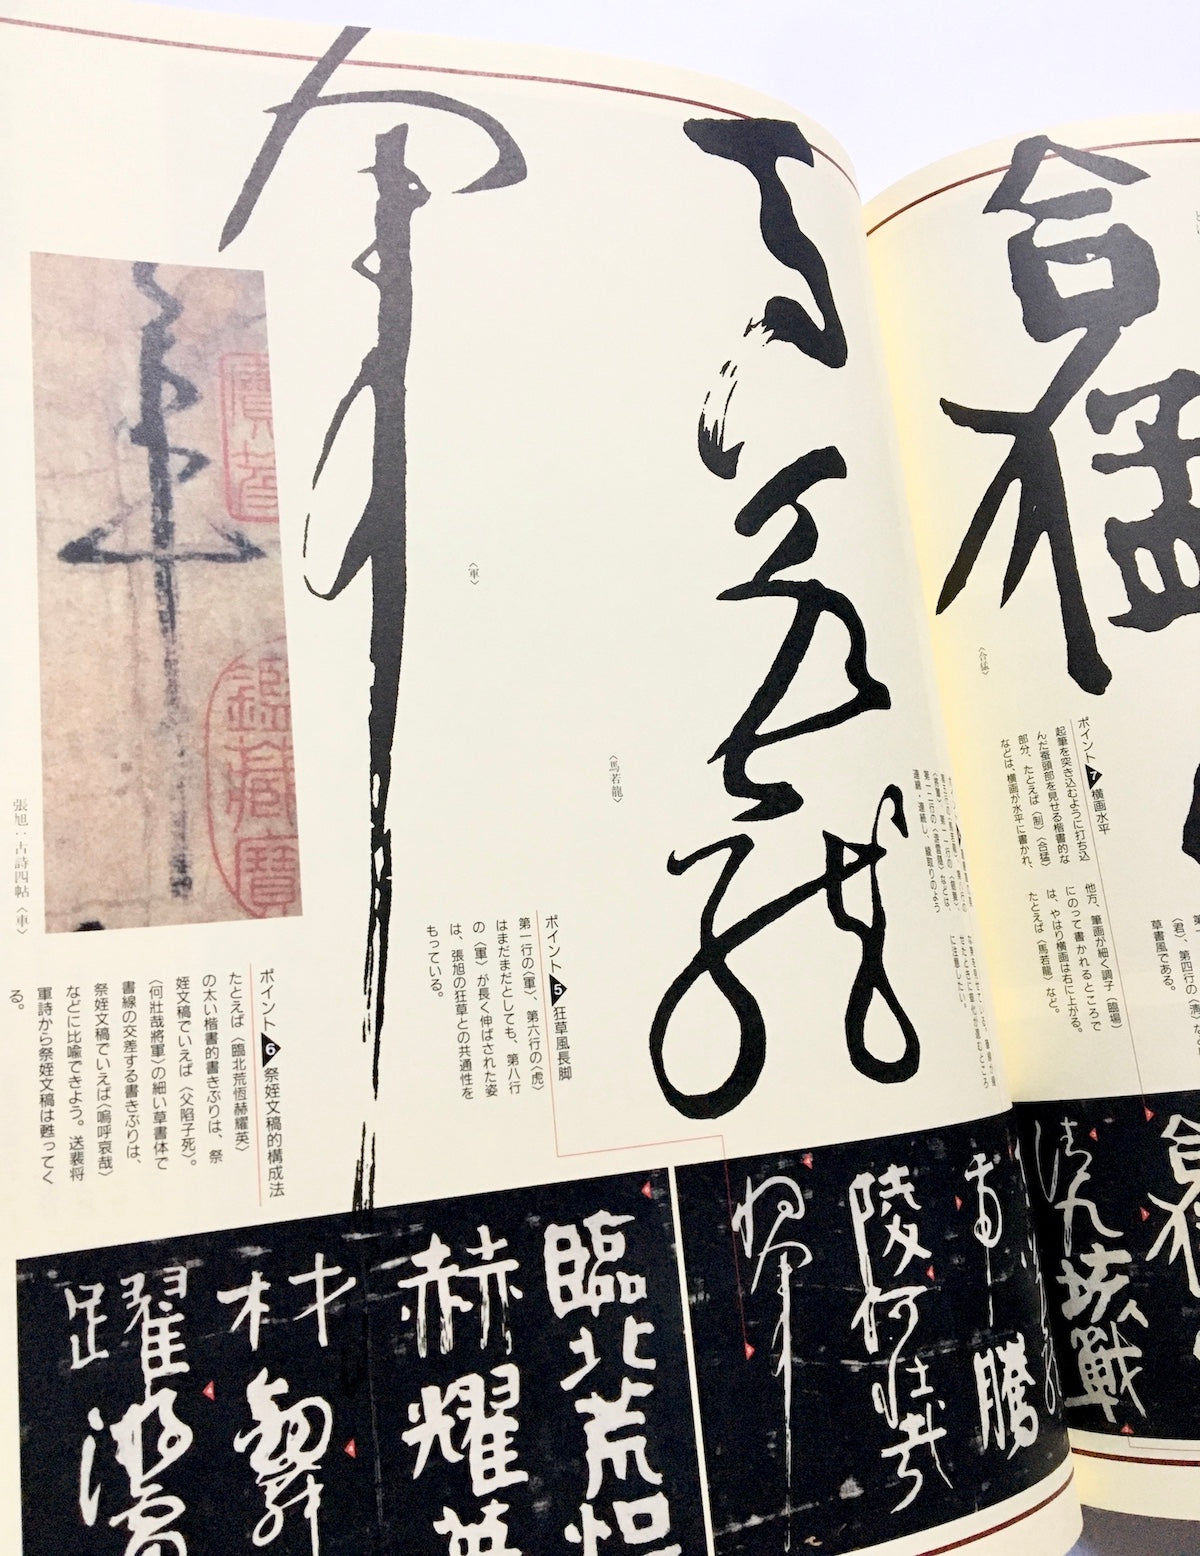 合猛
〈合猛〉
草書風である。
ポイント7 横画水平
起筆を突き込むように打ち込
んだ蚕頭部を見せる楷書的な
部分、たとえば〈制〉〈合猛〉
などは、横画が水平に書かれ、
他方、筆画が細く調子(臨場)
にのって書かれるところで
は、やはり横画は右に上がる。
たとえば〈馬若龍〉など。
合猛
戰
馬若龍
〈馬若龍〉
連綿・連続し、綾取りのよう
に注意したい。
軍
〈軍〉
ポイント5 狂草風長脚
第一行の〈軍〉、第六行の〈虎〉
はまだまだとしても、第八行
の〈軍〉が長く伸ばされた姿
は、張旭の狂草との共通性を
もっている。
張旭:古詩四帖〈車〉
ポイント6 祭姪文稿的構成法
たとえば〈臨北荒恆赫耀英〉
の太い楷書的書きぶりは、祭
姪文稿でいえば〈父陥子死〉。
〈何壯哉將軍〉の細い草書体で
書線の交差する書きぶりは、
祭姪文稿でいえば〈嗚呼哀哉〉
などに比喩できよう。送裴将
軍詩から祭姪文稿は甦ってく
る。
騰
陵何壯哉
將軍
臨北荒恆
赫耀英
材劍舞
躍游